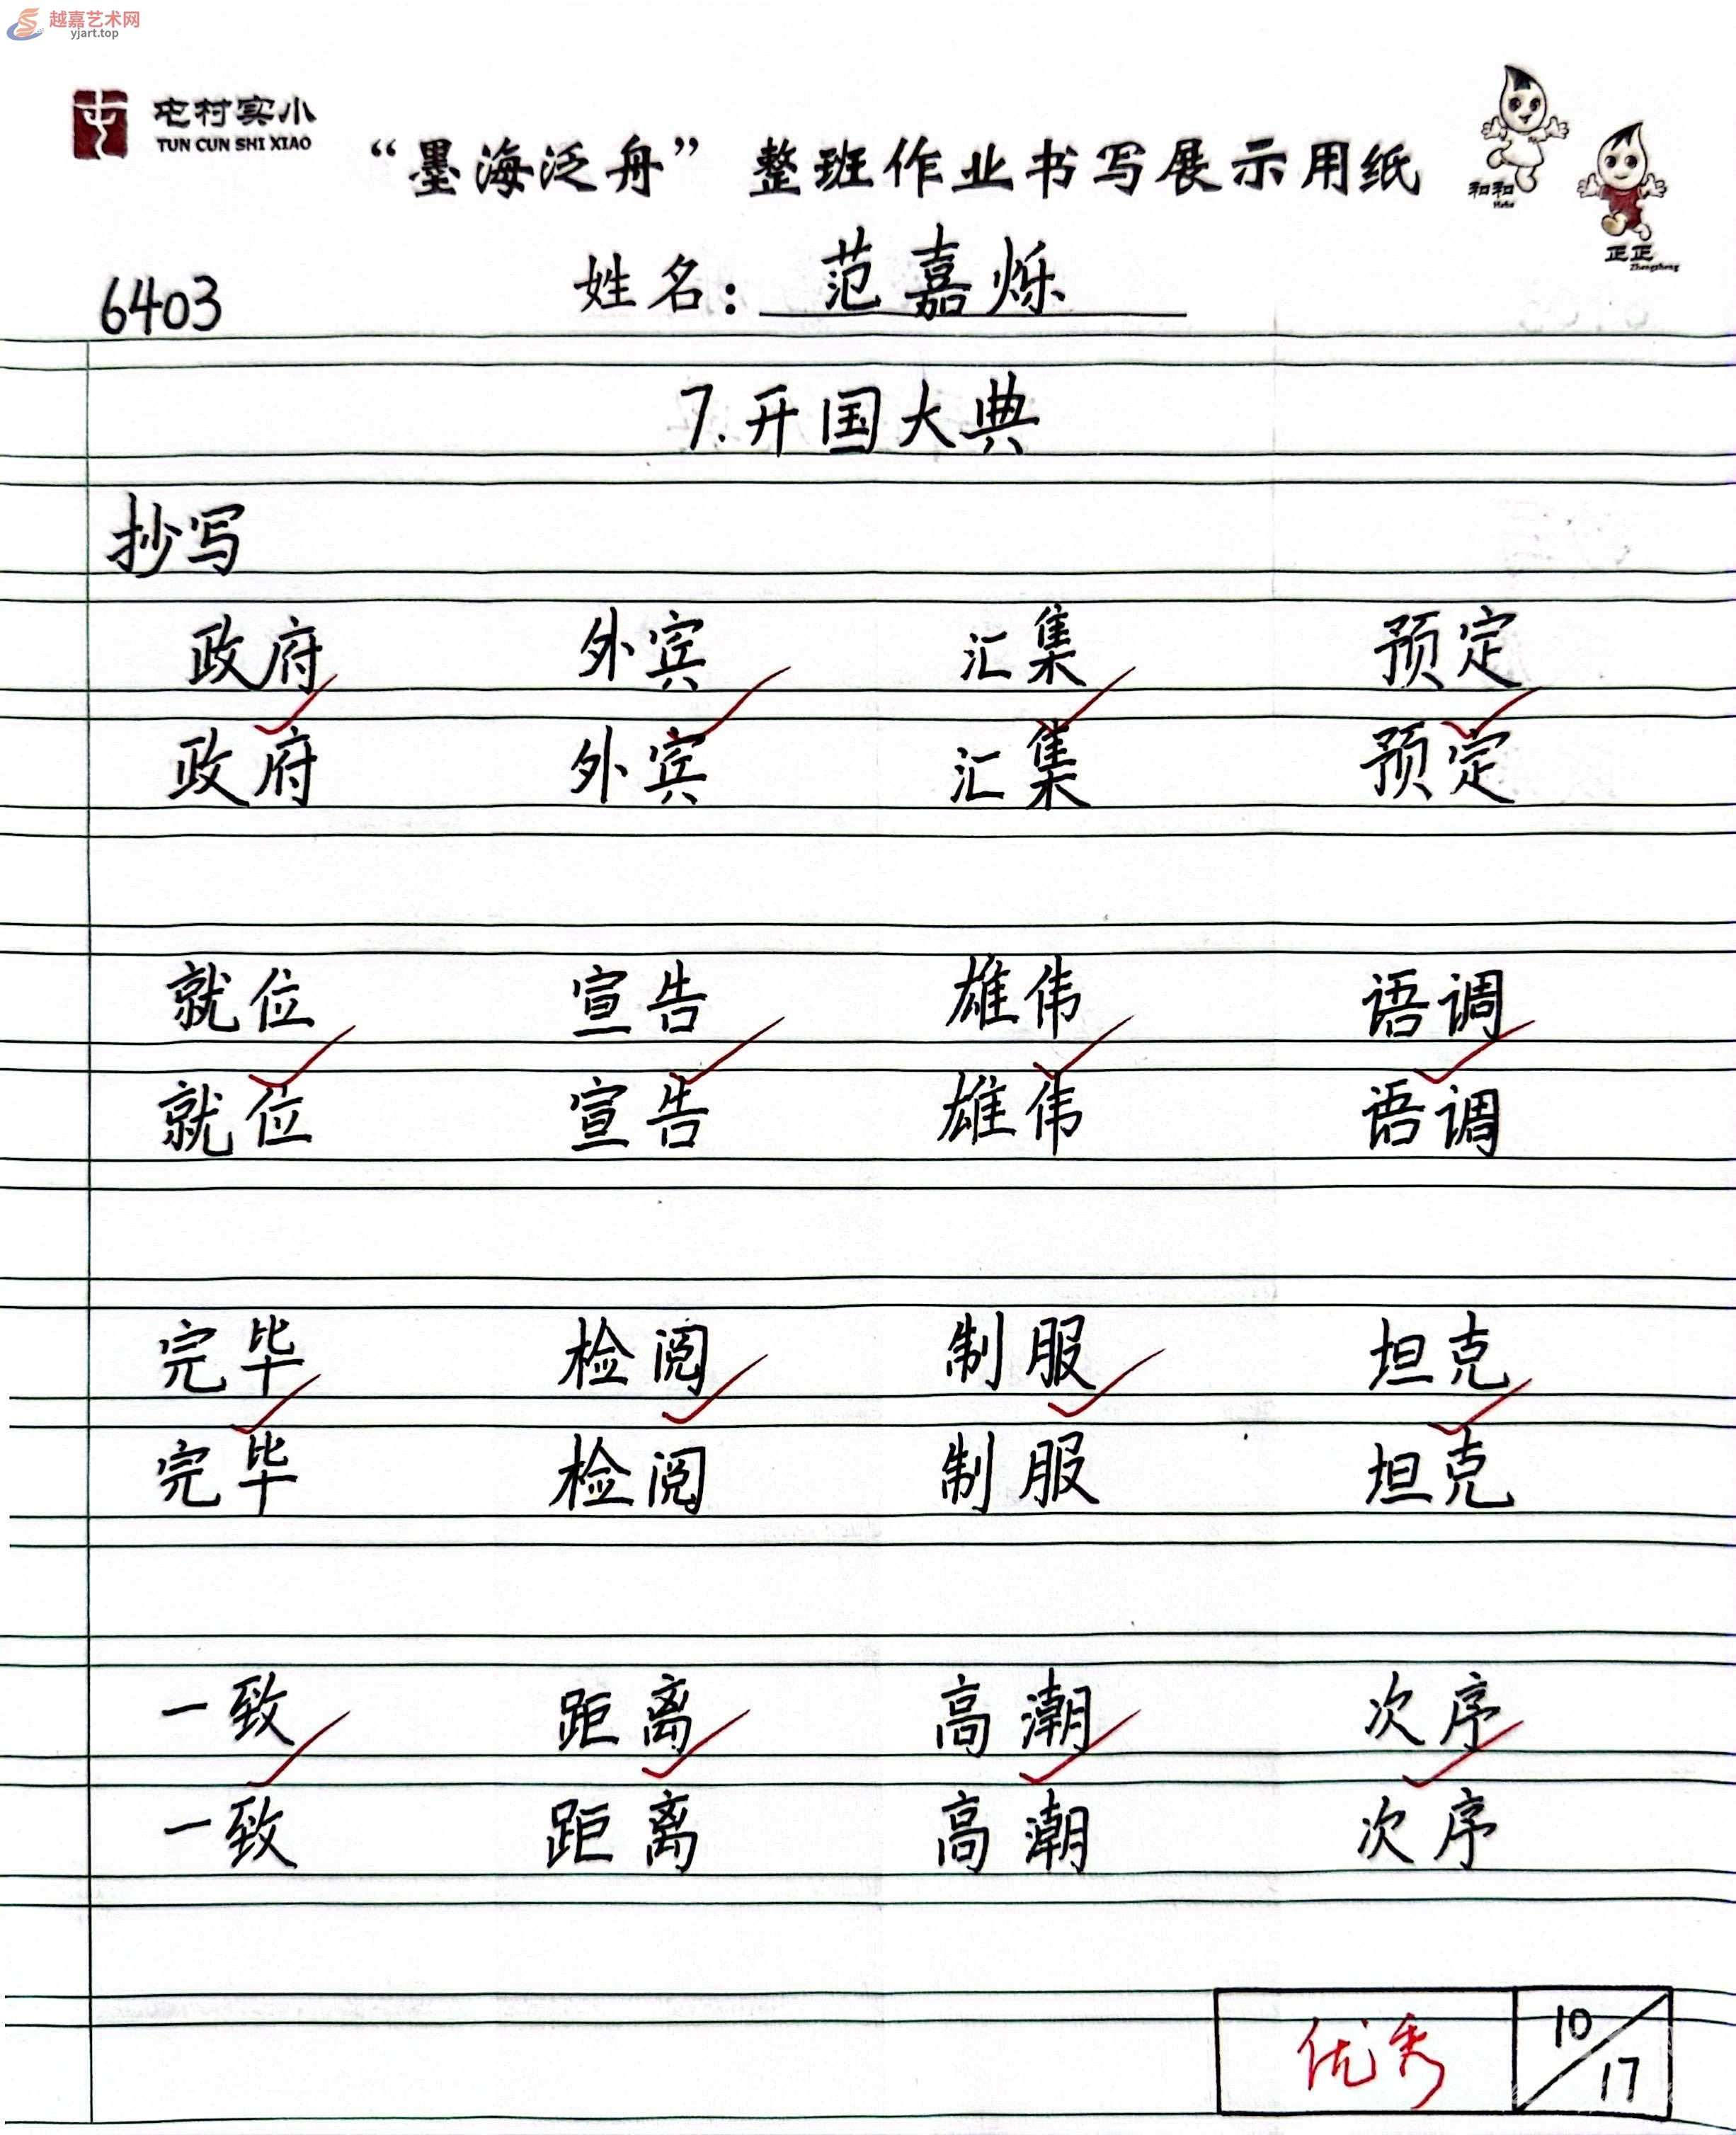 越嘉艺术网
yjart.top
屯村实小
TUN CUN SHI XIAO
“墨海泛舟” 整班作业书写展示用纸
和和
Hehe
正正
Zhengzheng
6403 姓名：范嘉烁
7.开国大典
抄写
政府 外宾 汇集 预定
政府 外宾 汇集 预定
就位 宣告 雄伟 语调
就位 宣告 雄伟 语调
完毕 检阅 制服 坦克
完毕 检阅 制服 坦克
一致 距离 高潮 次序
一致 距离 高潮 次序
优秀 10/17